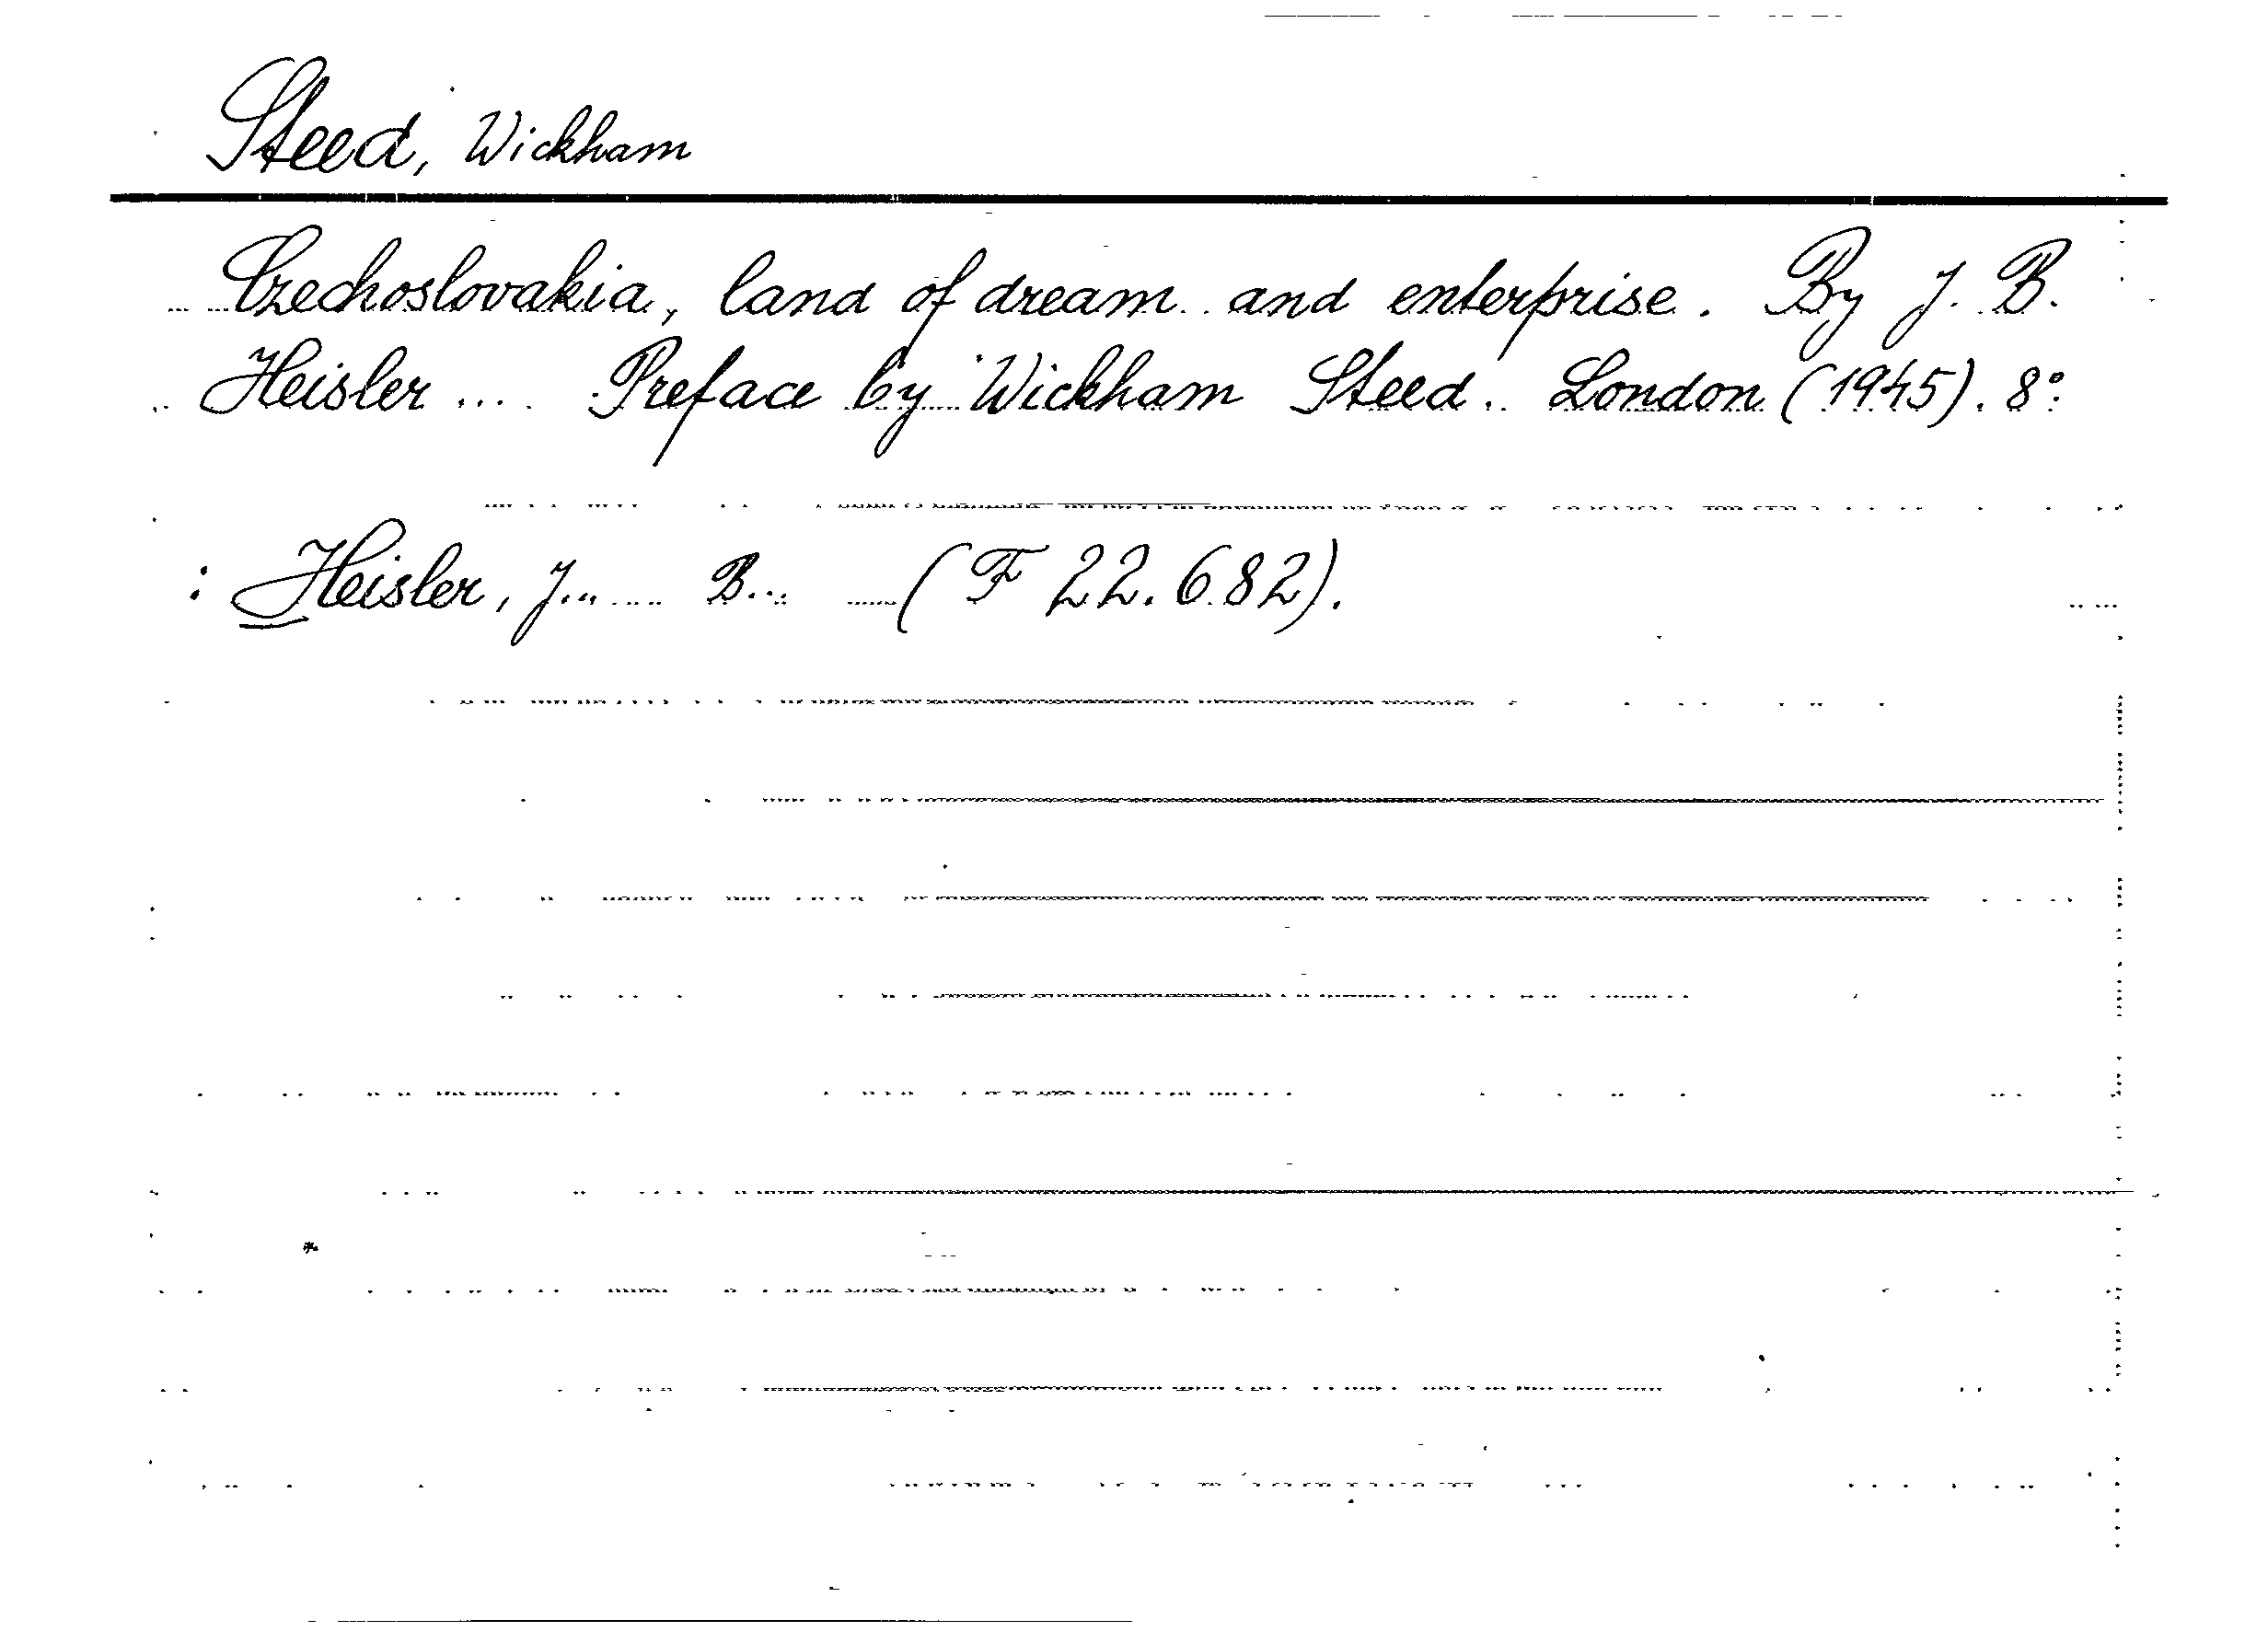 Steed, Wickham
Czechoslovakia, land of dream and enterprise. By J. B.
Heisler .... Preface by Wickham Steed. London (1945). 8°.
: Heisler, J... B... (F 22.682).